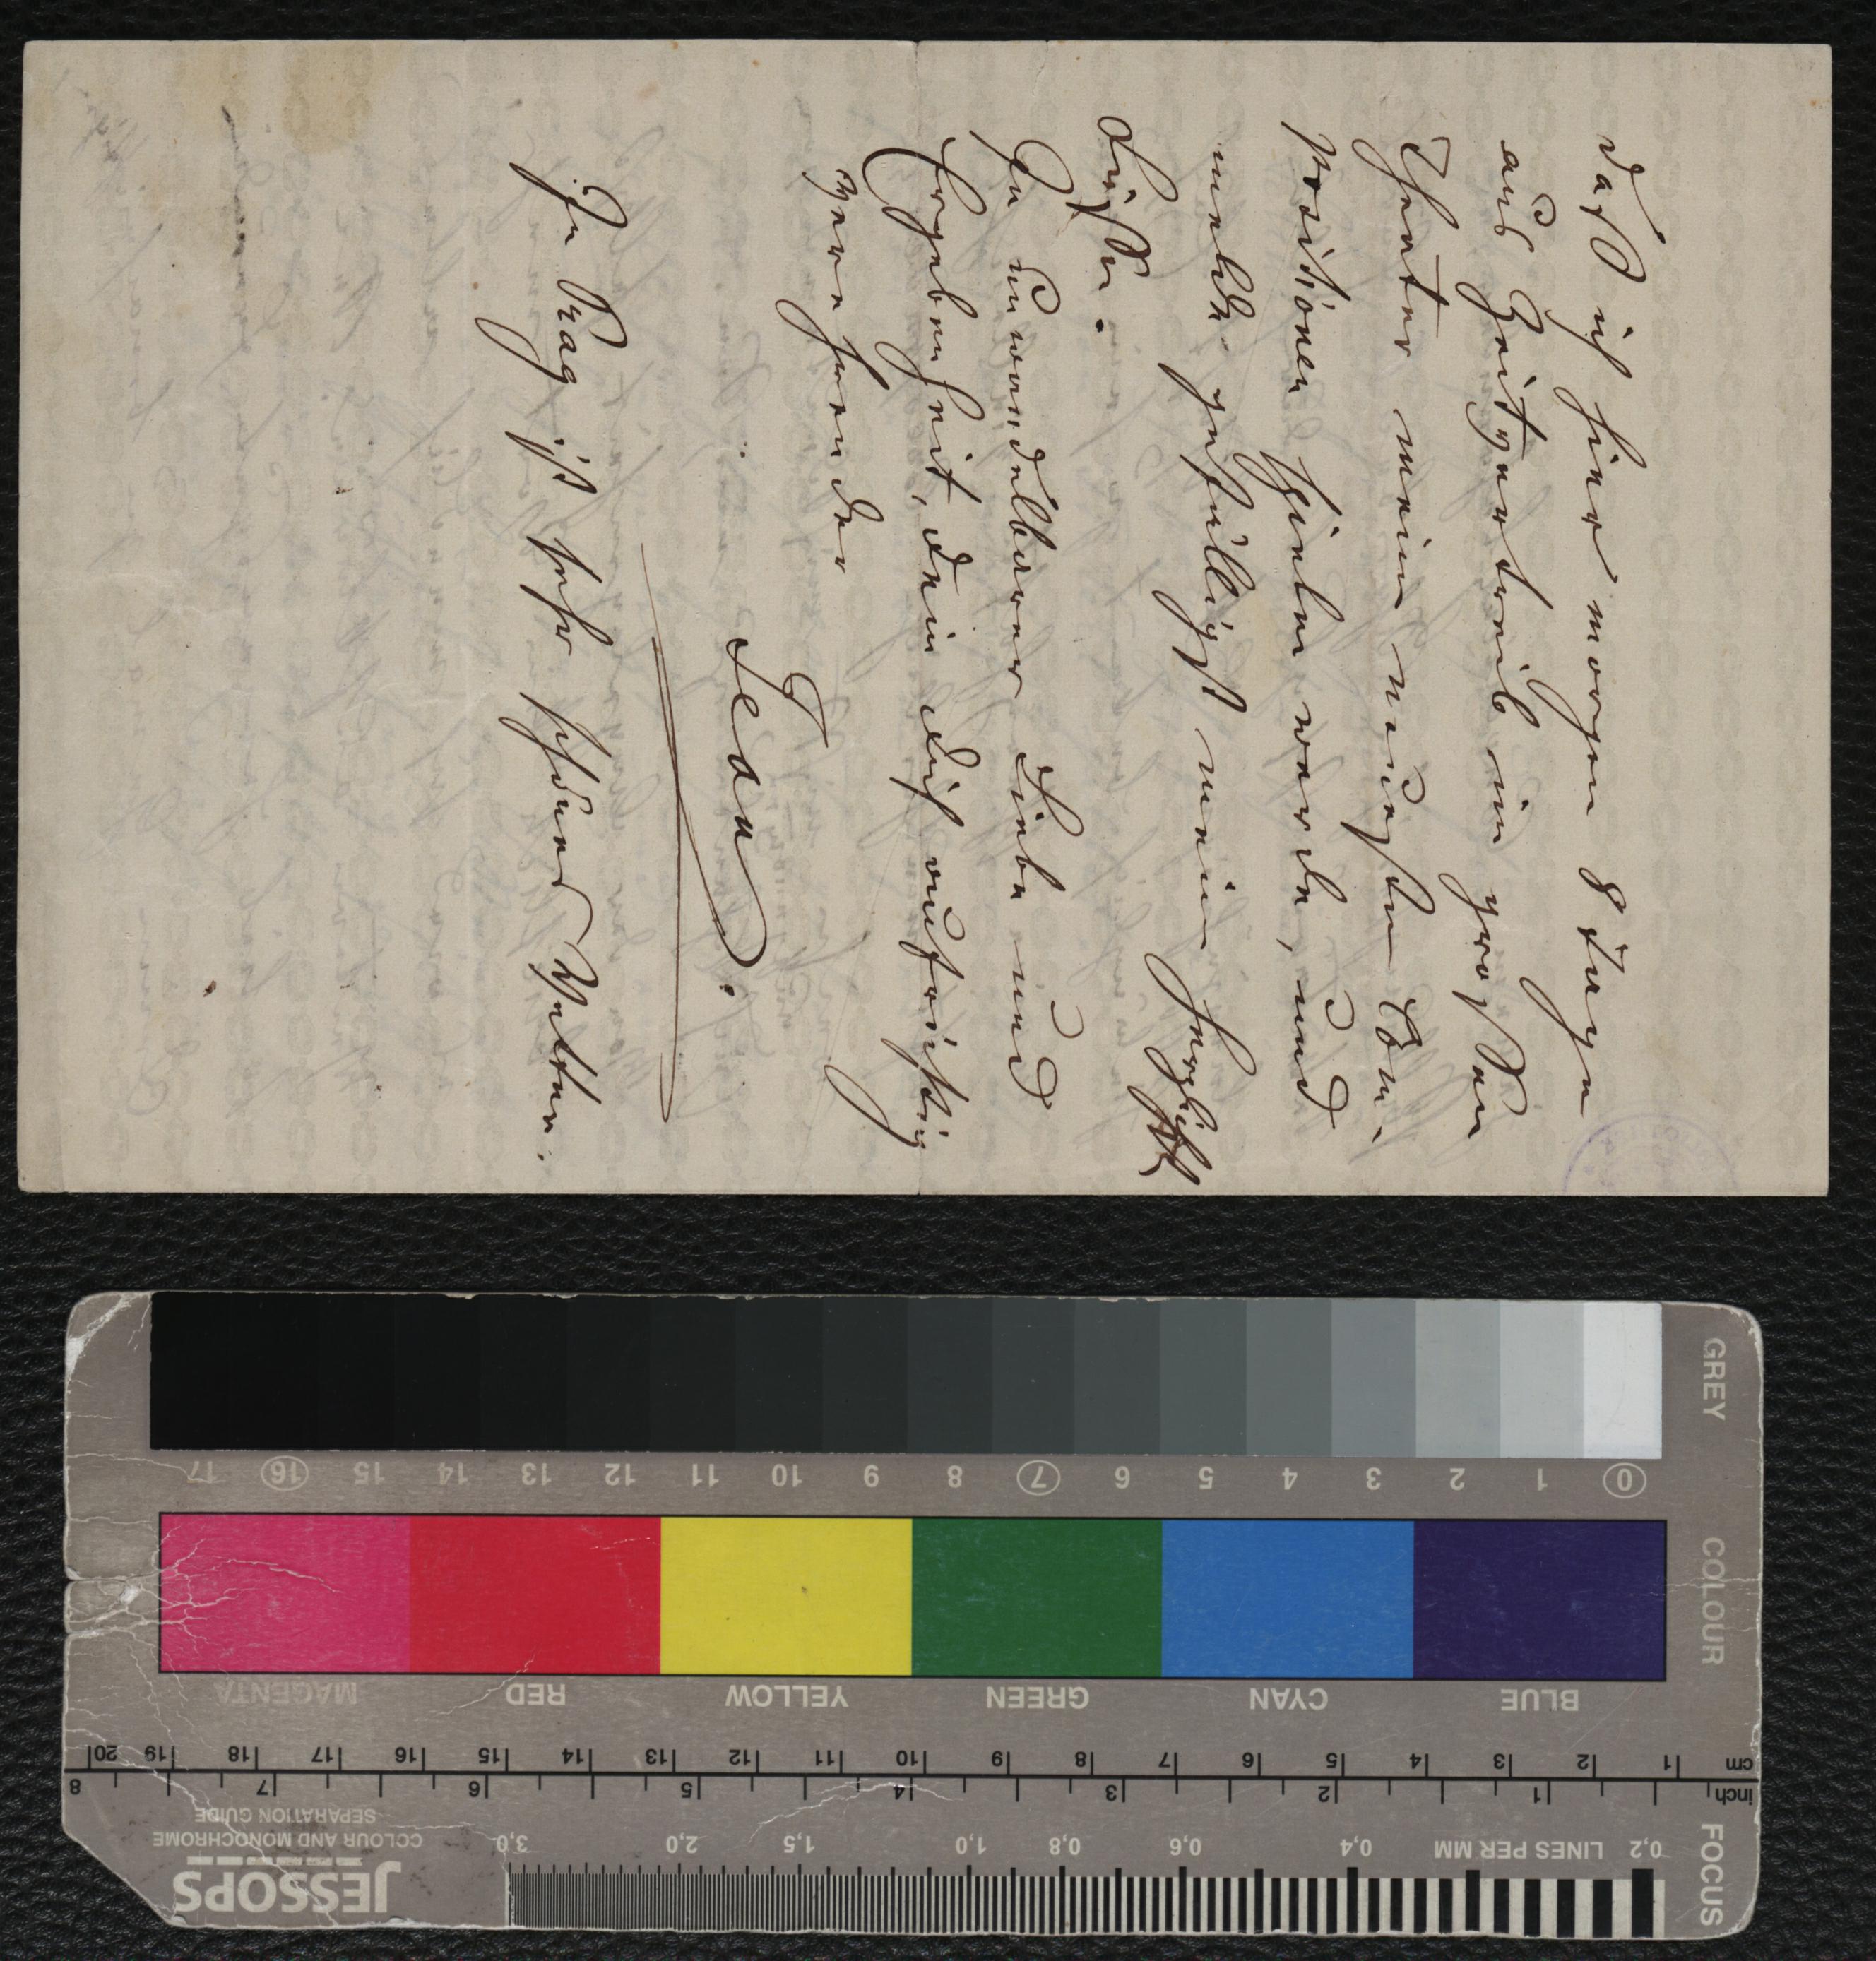 daß ich hier morgen 8 Tage
aus Zeitvertreib im großen
Theater meine neuesten Com-
positionen spielen werde, und
melde gefälligst meine herzlichst
Grüße.
In unwandelbarer Liebe und
Ergebenheit, dein dich aufrichtig
verehrender
Jean.
In Prag ist sehr schönes Wetter.
GREY
0 1 2 3 4 5 6 7 8 9 10 11 12 13 14 15 16 17
COLOUR
BLUE CYAN GREEN YELLOW RED MAGENTA
cm 1 2 3 4 5 6 7 8 9 10 11 12 13 14 15 16 17 18 19 20
inch 1 2 3 4 5 6 7 8
FOCUS
0,2 LINES PER MM 0,4 0,6 0,8 1,0 1,5 2,0 3,0
COLOUR AND MONOCHROME
SEPARATION GUIDE
JESSOPS